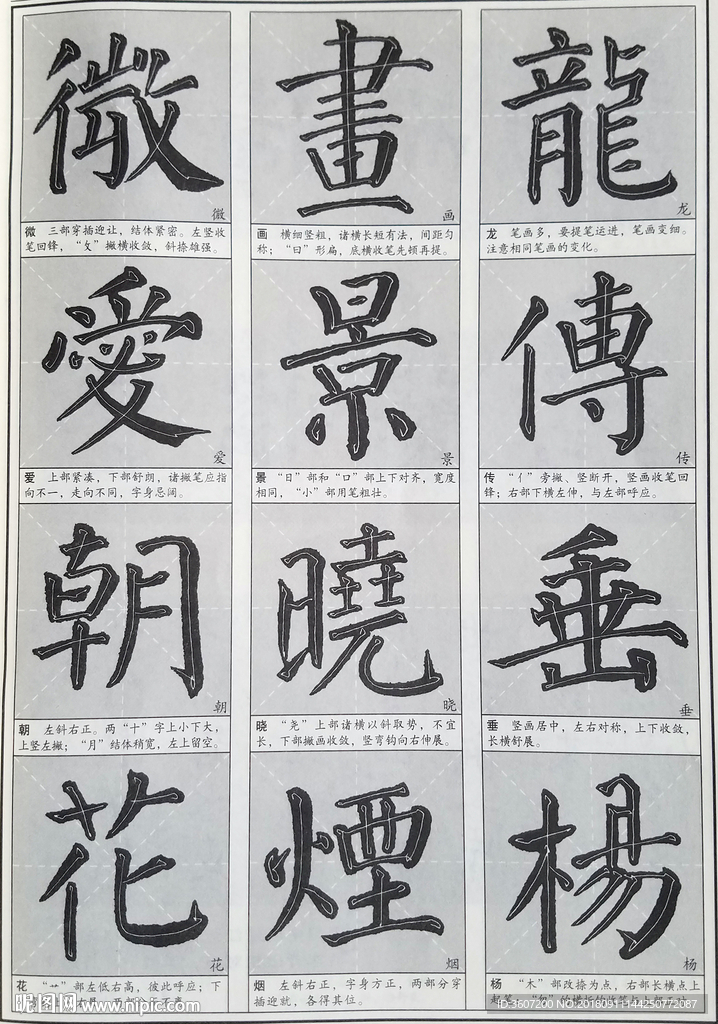 微 畫 龍
微 画 龙
微 三部穿插迎让，结体紧密。左竖收
笔回锋，“攵”撇横收敛，斜捺雄强。
画 横细竖粗，诸横长短有法，间距匀
称；“曰”形扁，底横收笔先顿再提。
龙 笔画多，要提笔运进，笔画变细。
注意相同笔画的变化。
愛 景 傳
爱 景 传
爱 上部紧凑，下部舒朗，诸撇笔应指
向不一，走向不同，字身忌阔。
景 “日”部和“口”部上下对齐，宽度
相同，“小”部用笔粗壮。
传 “亻”旁撇、竖断开，竖画收笔回
锋；右部下横左伸，与左部呼应。
朝 曉 垂
朝 晓 垂
朝 左斜右正。两“十”字上小下大，
上竖左撇；“月”结体稍宽，左上留空。
晓 “尧”上部诸横以斜取势，不宜
长，下部撇画收敛，竖弯钩向右伸展。
垂 竖画居中，左右对称，上下收敛，
长横舒展。
花 煙 楊
花 烟 杨
花 “艹”部左低右高，彼此呼应；下
烟 左斜右正，字身方正，两部分穿
插迎就，各得其位。
杨 “木”部改捺为点，右部长横点上
昵图网 www.nipic.com
ID:3607200 NO:20180911144250772087